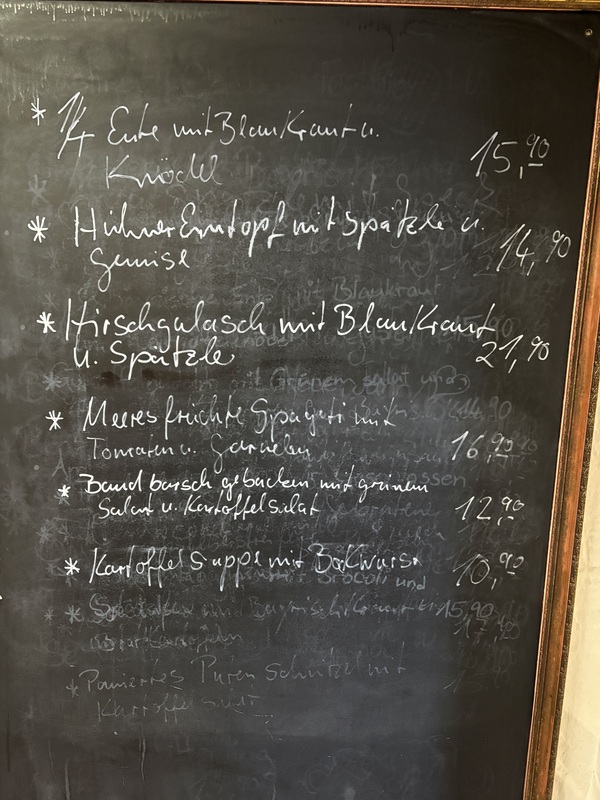 * 1/4 Ente mit Blaukraut u.
Knödel 15,90
* Hühner Eintopf mit Spätzle u.
Gemise 14,90
* Hirschgulasch mit Blaukraut
u. Spätzle 21,90
* Meeresfrüchte Spageti mit
Tomaten u. Garnelen 16,90
* Band barsch gebacken mit grünem
Salat u. Kartoffelsalat 12,90
* Kartoffelsuppe mit Bokwurst 10,90
15,90
17,90
* Paniertes Puten Schnitzel mit
Kartoffelsalat